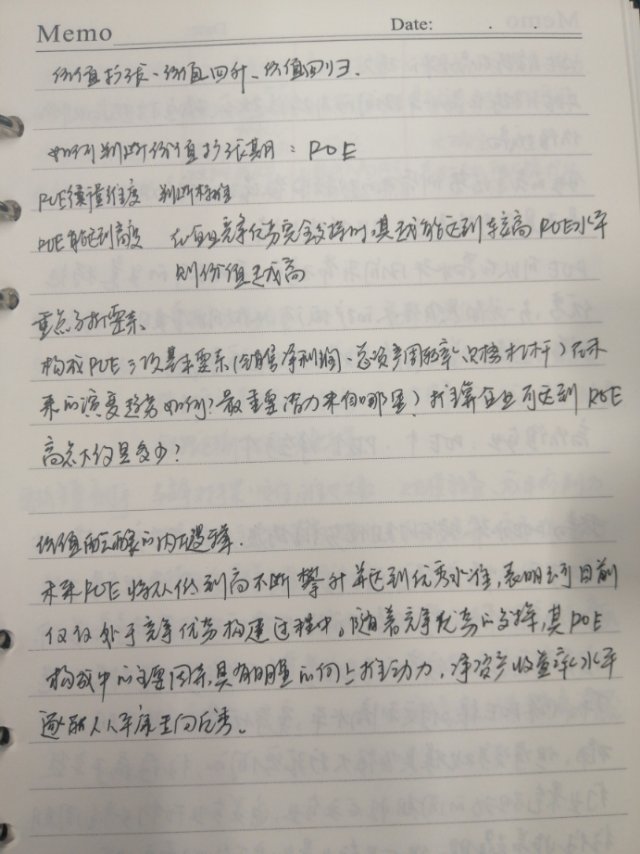 Memo
Date: . .
价值扩张、价值回升、价值回归.
如何判断价值扩张期: ROE
ROE衡量维度 判断标准
ROE能达到高度 在自身竞争优势完全发挥时,其越能达到较高ROE水平
则价值越高
重点分析要素.
构成ROE三项基本要素(销售净利润、总资产周转率、财务杠杆)在未
来的演变趋势如何?最重要潜力来自哪里)推算企业可达到ROE
高点大约是多少?
价值的内在逻辑.
未来ROE将从低到高不断攀升并达到优秀水准,表明公司目前
仅仅处于竞争优势构建过程中。随着竞争优势的发挥,其ROE
构成中的主要因素具有明显的向上推动力,净资产收益率水平
逐渐从平庸走向优秀。